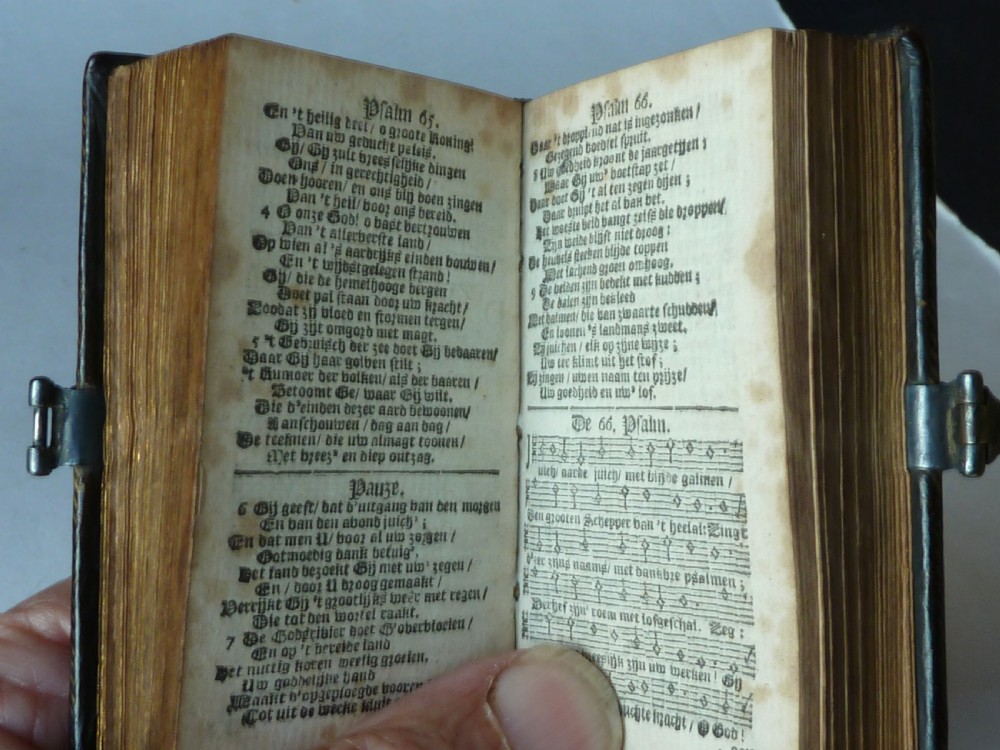 Psalm 65.
En 't heilig deel / o groote Koning!
Van uw geducht paleis.
Gij / Gij zult vreesselijke dingen
Ons / in gerechtigheid /
Doen hooren / en ons blij doen zingen
Van 't heil / voor ons bereid.
4 O onze God! o vast vertrouwen
Van 't allerverste land /
Op wien al 's aardrijks einden bouwen /
En 't wijdstgelegen strand!
Gij / die de hemelhooge bergen
Doet pal staan door uw kracht /
Zoodat zij vloed en stormen tergen /
Gij zijt omgord met magt.
5 't Gebruisch der zee doet Gij bedaaren /
Daar Gij haar golven stilt ;
't Rumoer der volken / als der baaren /
Betoomt Ge / waar Gij wilt.
Die d'einden dezer aard bewoonen /
Aanschouwen / dag aan dag /
De teeknen / die uw almagt toonen /
Met vreez' en diep ontzag.
Pauze.
6 Gij geeft / dat d'uitgang van den morgen
En van den avond juich' ;
En dat men U / voor al uw zorgen /
Ootmoedig dank betuig'.
Het land bezoekt Gij met uw' zegen /
En / door U droog gemaakt /
Verrijkt Gij 't grootlijks weêr met regen /
Die tot den wortel raakt.
7 De Godsrivier doet G'overvloeien /
En op 't bereide land
Het nuttig koren weelig groeien,
Uw goddelijke hand
Maakt d'opgeploegde vooren
Tot uit de weeke
Psalm 66.
Daar 't dropplend nat is ingezonken /
Gezegend voedsel spruit.
8 Uw goedheid kroont de jaargetijen ;
Waar Gij uw' voetstap zet /
Daar doet Gij 't al ten zegen dijen ;
Daar druipt het al van vet.
Het woeste veld vangt zelfs die droppen /
Zijn weide blijft niet droog :
De heuvels steeken blijde toppen
Met lachend groen omhoog.
9 De velden zijn bedekt met kudden ;
De dalen zijn bekleed
Met halmen / die van zwaarte schudden /
En loonen 's landmans zweet.
Zij juichen / elk op zijne wijze ;
Uw eer klimt uit het stof ;
Zij zingen / uwen naam ten prijze /
Uw goedheid en uw' lof.
De 66. Psalm.
uich / aarde juich / met blijde galmen /
Den grooten Schepper van 't heelal: Zingt
d'eer zijns naams / met dankbre psalmen ;
Verhef zijn' roem met lofgeschal. Zeg :
zijn uw werken! Gij
kracht / O God!